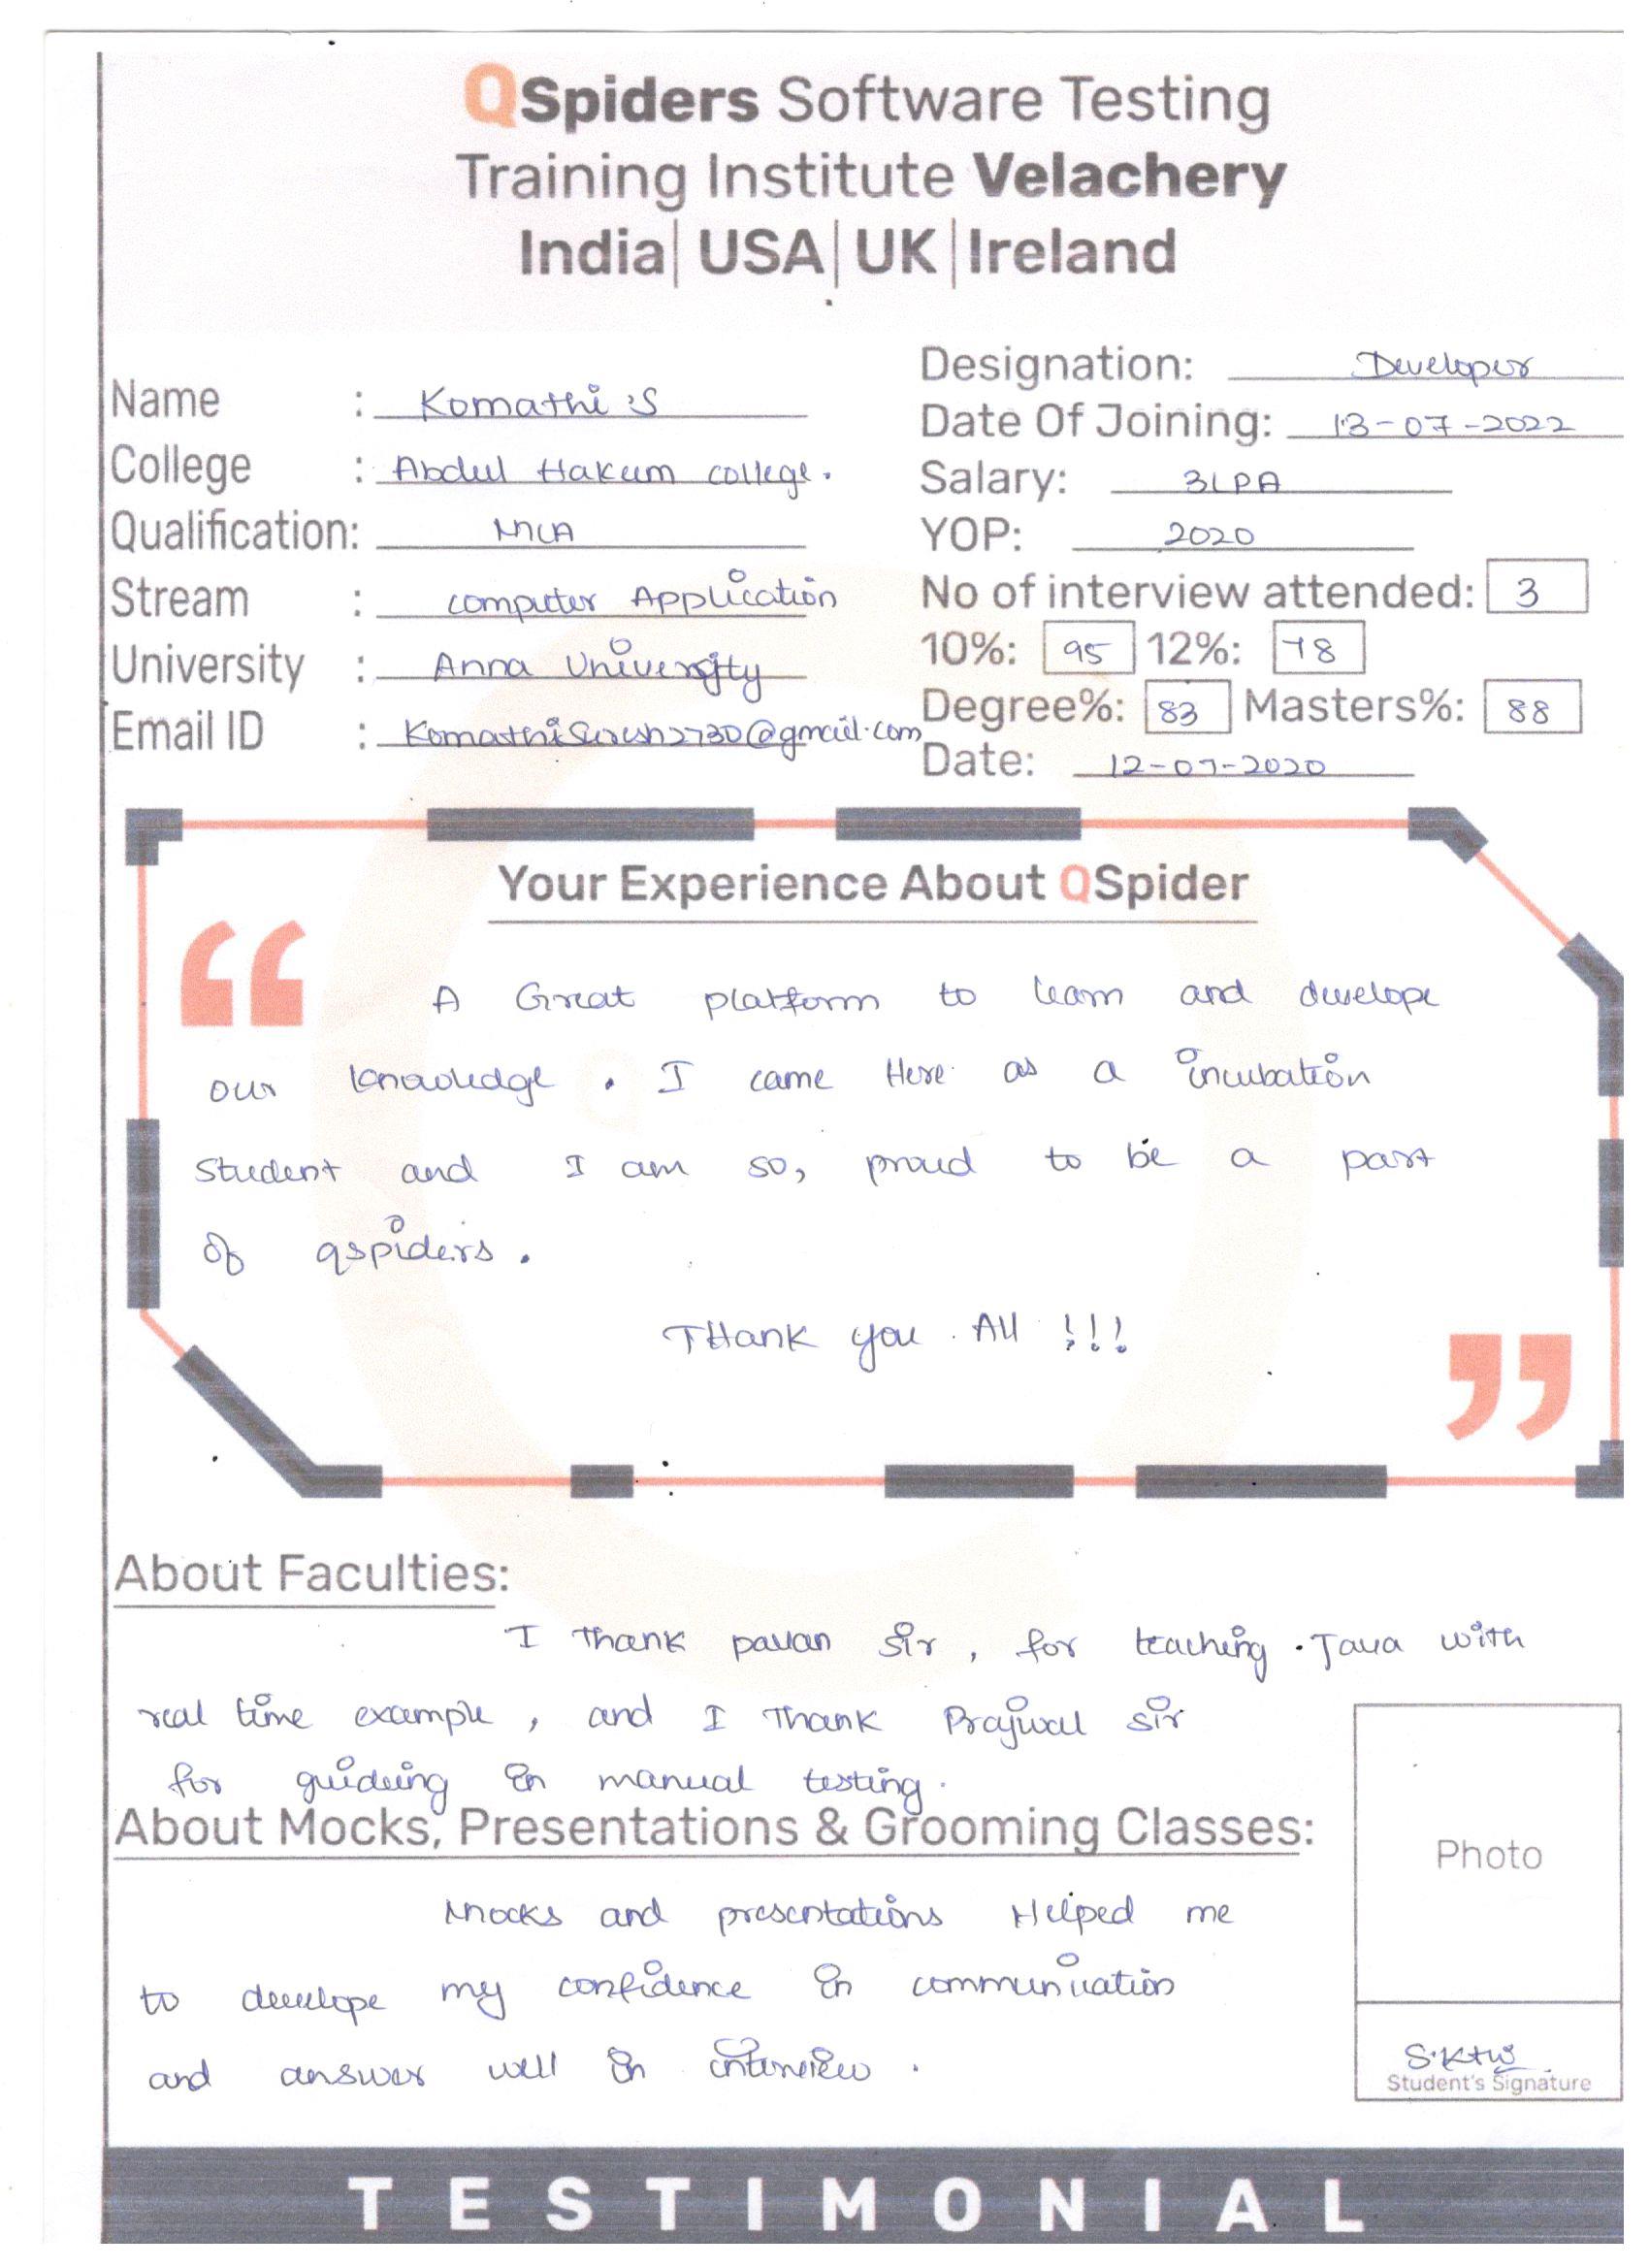 QSpiders Software Testing
Training Institute Velachery
India| USA| UK |Ireland
Name : Komathi S
College : Abdul Hakeem college.
Qualification: MCA
Stream : computer Application
University : Anna University
Email ID : KomathiSuresh2730@gmail.com
Designation: Developer
Date Of Joining: 13-07-2022
Salary: 3LPA
YOP: 2020
No of interview attended: 3
10%: 95 12%: 78
Degree%: 83 Masters%: 88
Date: 12-07-2020
Your Experience About QSpider
“
A Great platform to learn and develope
our knowledge . I came Here as a incubation
student and I am so, proud to be a part
of qspiders .
THank you All !!!
”
About Faculties:
I Thank pavan sir , for teaching Java with
real time example , and I Thank Prajwal sir
for guideing in manual testing .
About Mocks, Presentations & Grooming Classes:
Mocks and presentations Helped me
to develope my confidence in communication
and answer well in interview .
Photo
Student's Signature
TESTIMONIAL